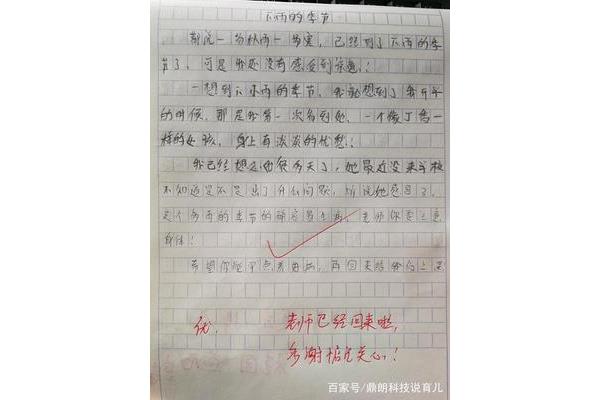 下雨的季节
都说一场秋雨一场寒,已经到了下雨的季
节了,可是我还没有感受到凉意!
一想到下雨的季节,我就想到了我开学
的时候,那是我第一次见到她,一个像丁香一
样的女孩,身上有淡淡的忧愁!
我已经想她很多天了,她最近没来学校
不知道是不是出了什么问题,听说她感冒了,
这个多雨的季节的确容易生病,老师你要注意
身体!
希望你能早点养好病,再回来给我们上课
优. 老师已经回来啦,
多谢 关心!
百家号/鼎朗科技说育儿